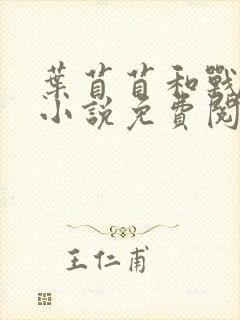 葉苜苜和戰
小說免費閱
王仁甫